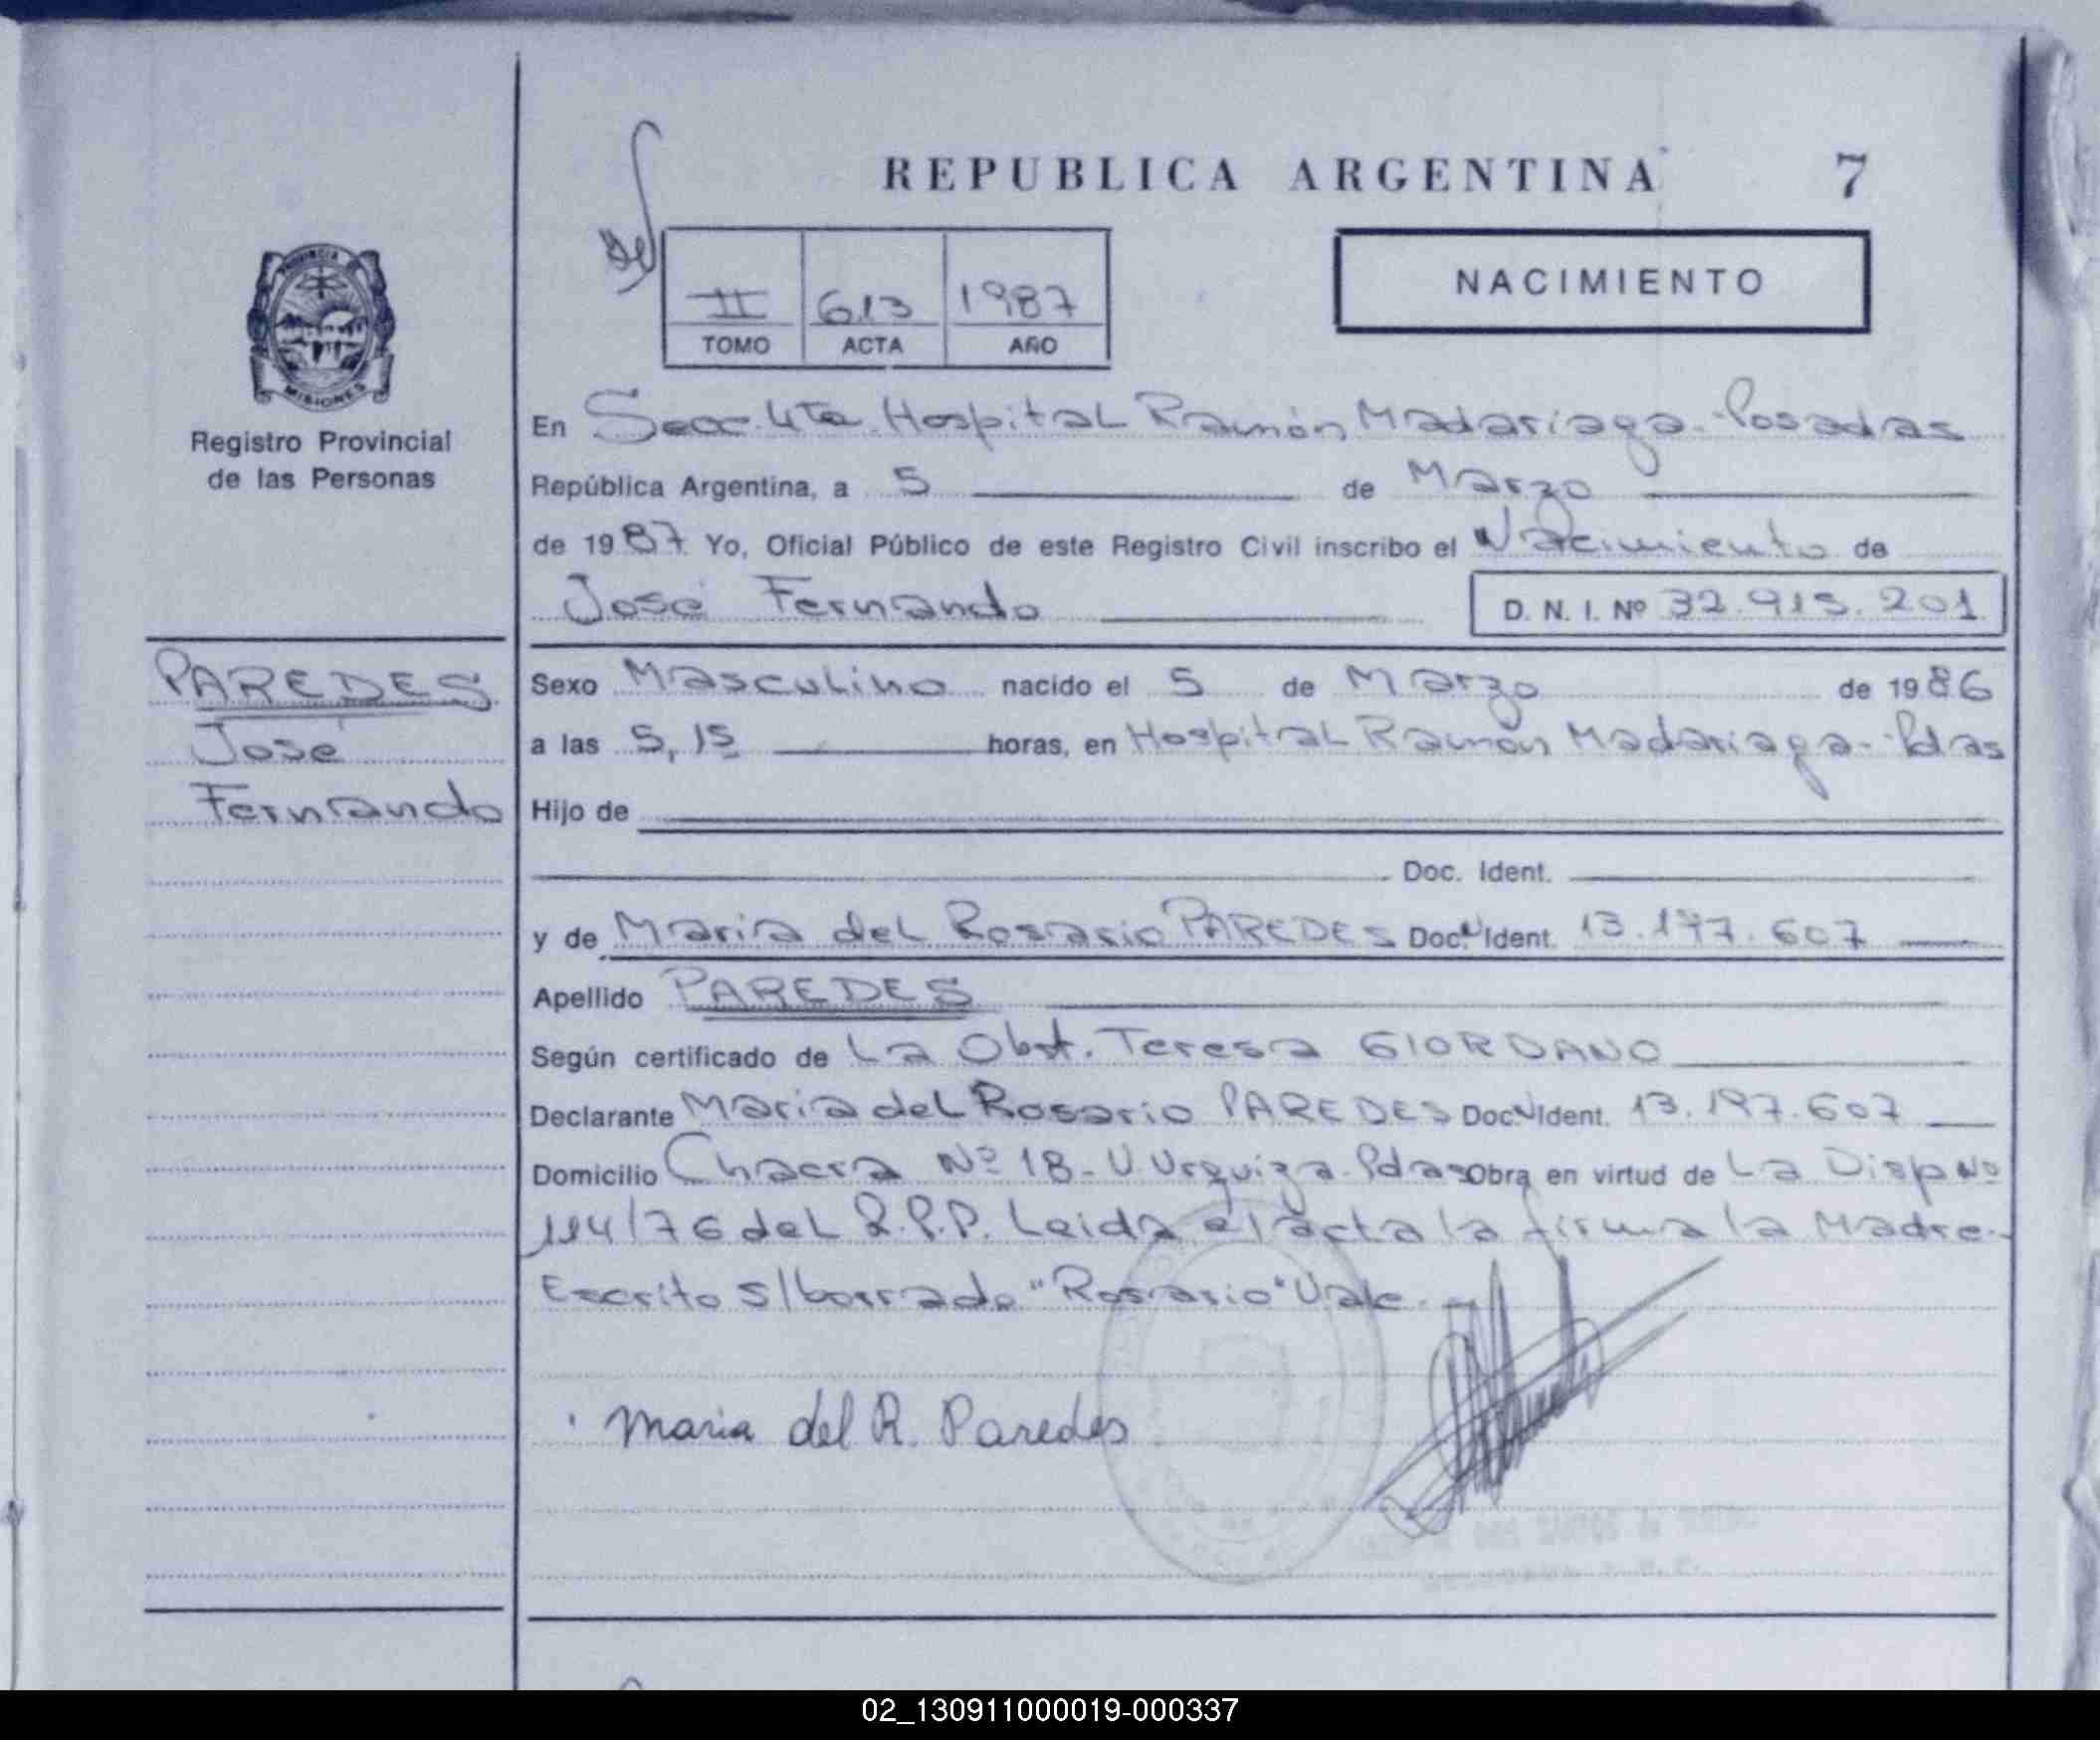 REPUBLICA ARGENTINA 7
NACIMIENTO
II 613 1987
TOMO ACTA AÑO
PROVINCIA
MISIONES
Registro Provincial
de las Personas
En Secc. 4ta. Hospital Ramón Madariaga - Posadas
República Argentina, a 5 de Marzo
de 1987. Yo, Oficial Público de este Registro Civil inscribo el Nacimiento de
José Fernando D. N. I. Nº 32.915.201
PAREDES
José
Fernando
Sexo Masculino nacido el 5 de Marzo de 1986
a las 5,15 horas, en Hospital Ramón Madariaga - Pdas
Hijo de
Doc. Ident.
y de Maria del Rosario PAREDES Doc. Ident. 13.197.607
Apellido PAREDES
Según certificado de La Obst. Teresa GIORDANO
Declarante Maria del Rosario PAREDES Doc. Ident. 13.197.607
Domicilio Chacra Nº 18 - V. Urquiza - Pdas Obra en virtud de La Disp Nº
114/76 del R.P.P. Leida el acta la firma la Madre.-
Escrito s/borrado "Rosario" Vale.-
Maria del R. Paredes
02_130911000019-000337